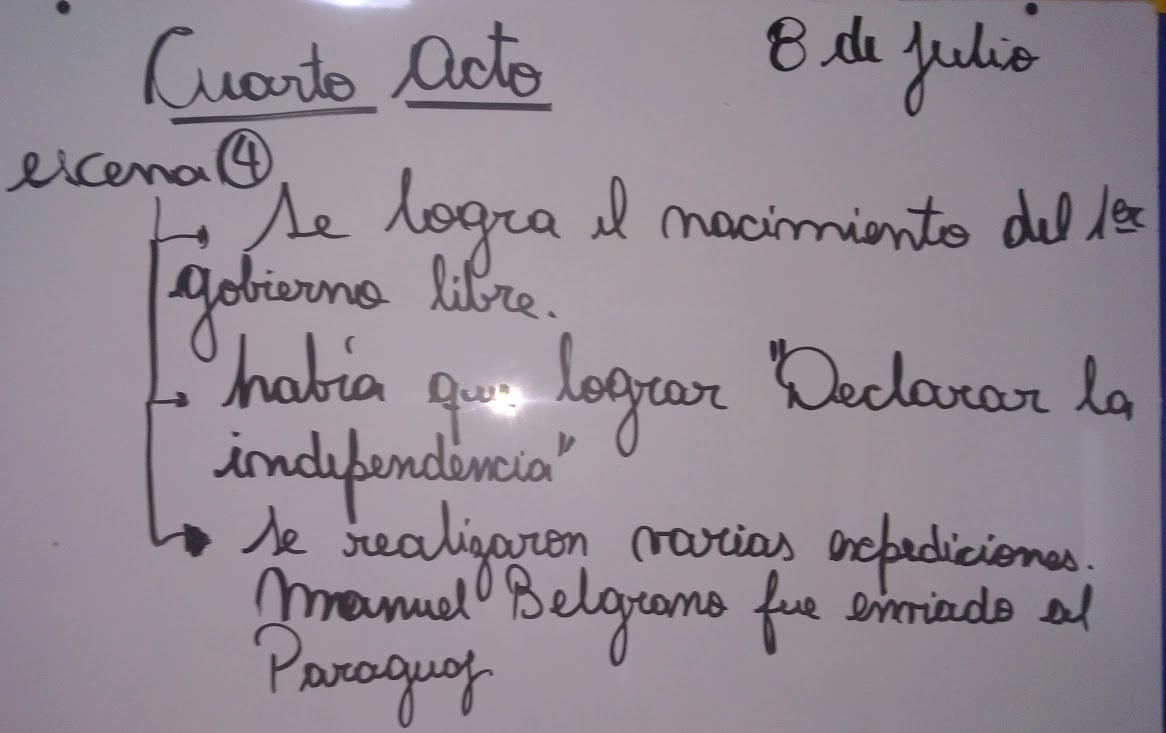 Cuarto Acto 8 de julio
escena 4
Se logra el nacimiento del 1er
gobierno libre.
había que lograr "Declarar la
independencia"
Se realizaron varias expediciones.
Manuel Belgrano fue enviado al
Paraguay